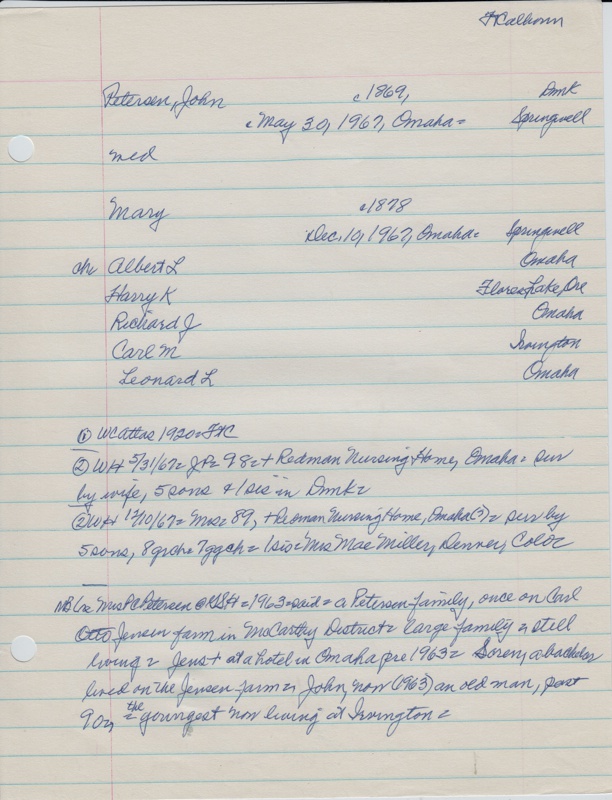 FtCalhoun
Petersen, John c1869, Dmk
c May 30, 1967, Omaha = Springwell
med
Mary c1878
Dec. 10, 1967, Omaha = Springwell
ch Albert L Omaha
Harry K Flores Lake, Ore
Richard J Omaha
Carl M Irvington
Leonard L Omaha
① WC atlas 1920 = FtC
② WH 5/31/67 = JP = 98 = + Redman Nursing Home, Omaha = sur
by wife, 5 sons + 1 sis in Dmk =
② WH 12/10/67 = Mrs = 89, + Redman Nursing Home, Omaha (?) = sur by
5 sons, 8 grch = 7 ggch = 1 sis = Mrs Mae Miller, Denver, Colo =
NB Mrs PC Petersen @ = 1963 = said = a Petersen family, once on Carl
Otto Jensen farm in McCarthy District = large family = still
living = Jens + at a hotel in Omaha pre 1963 = Soren, a bachelor
lived on the Jensen farm = John, now (1963) an old man, past
90, = the youngest now living at Irvington =